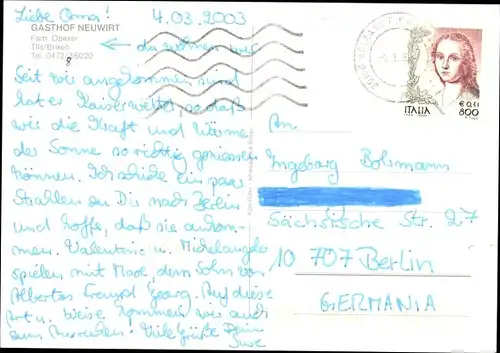 Liebe Oma! 4.03.2003
GASTHOF NEUWIRT
Fam. Obexer
Tils/Brixen
Tel. 0472/836020
← da wohnen wir
Seit wir angekommen sind
hat es Kaiserwetter, so daß
wir die Kraft und Wärme
der Sonne so richtig geniessen
können. Ich schicke ein paar
Strahlen zu Dir nach Berlin
und hoffe, daß sie ankom-
men. Valentino u. Michelangelo
spielen mit Mare dem Sohn von
Albertos Freund Georg. Auf diese
Art u. Weise kommen wir auch
zum Ausruhen! Viele Grüße Deine
Suse
ITALIA
€ 0,41
800
An
Ingeborg Bolsmann
Sächsische Str. 27
10 707 Berlin
GERMANIA